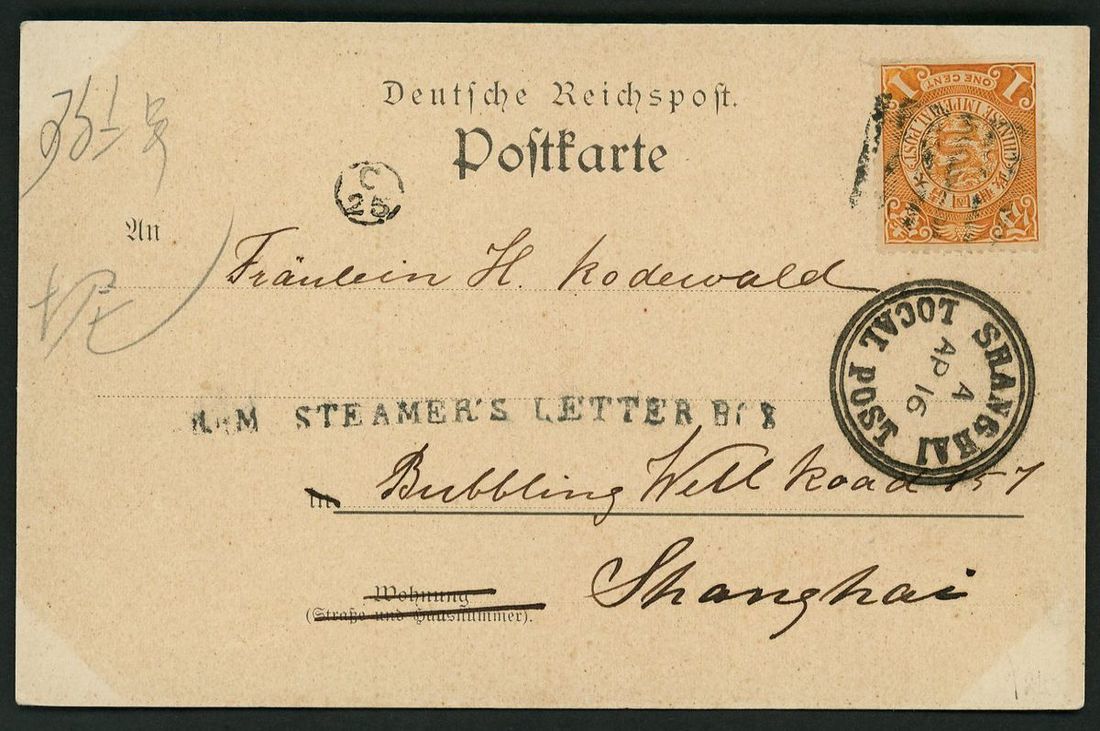 Deutsche Reichspost.
Postkarte
ONE CENT
1 1
CHINESE IMPERIAL POST
C
25
An
Fräulein H. Rodewald
SHANGHAI
LOCAL POST
A
AP 16
STEAMER'S LETTER BOX
in Bubbling Well Road 157
Shanghai
Wohnung
(Straße und Hausnummer).